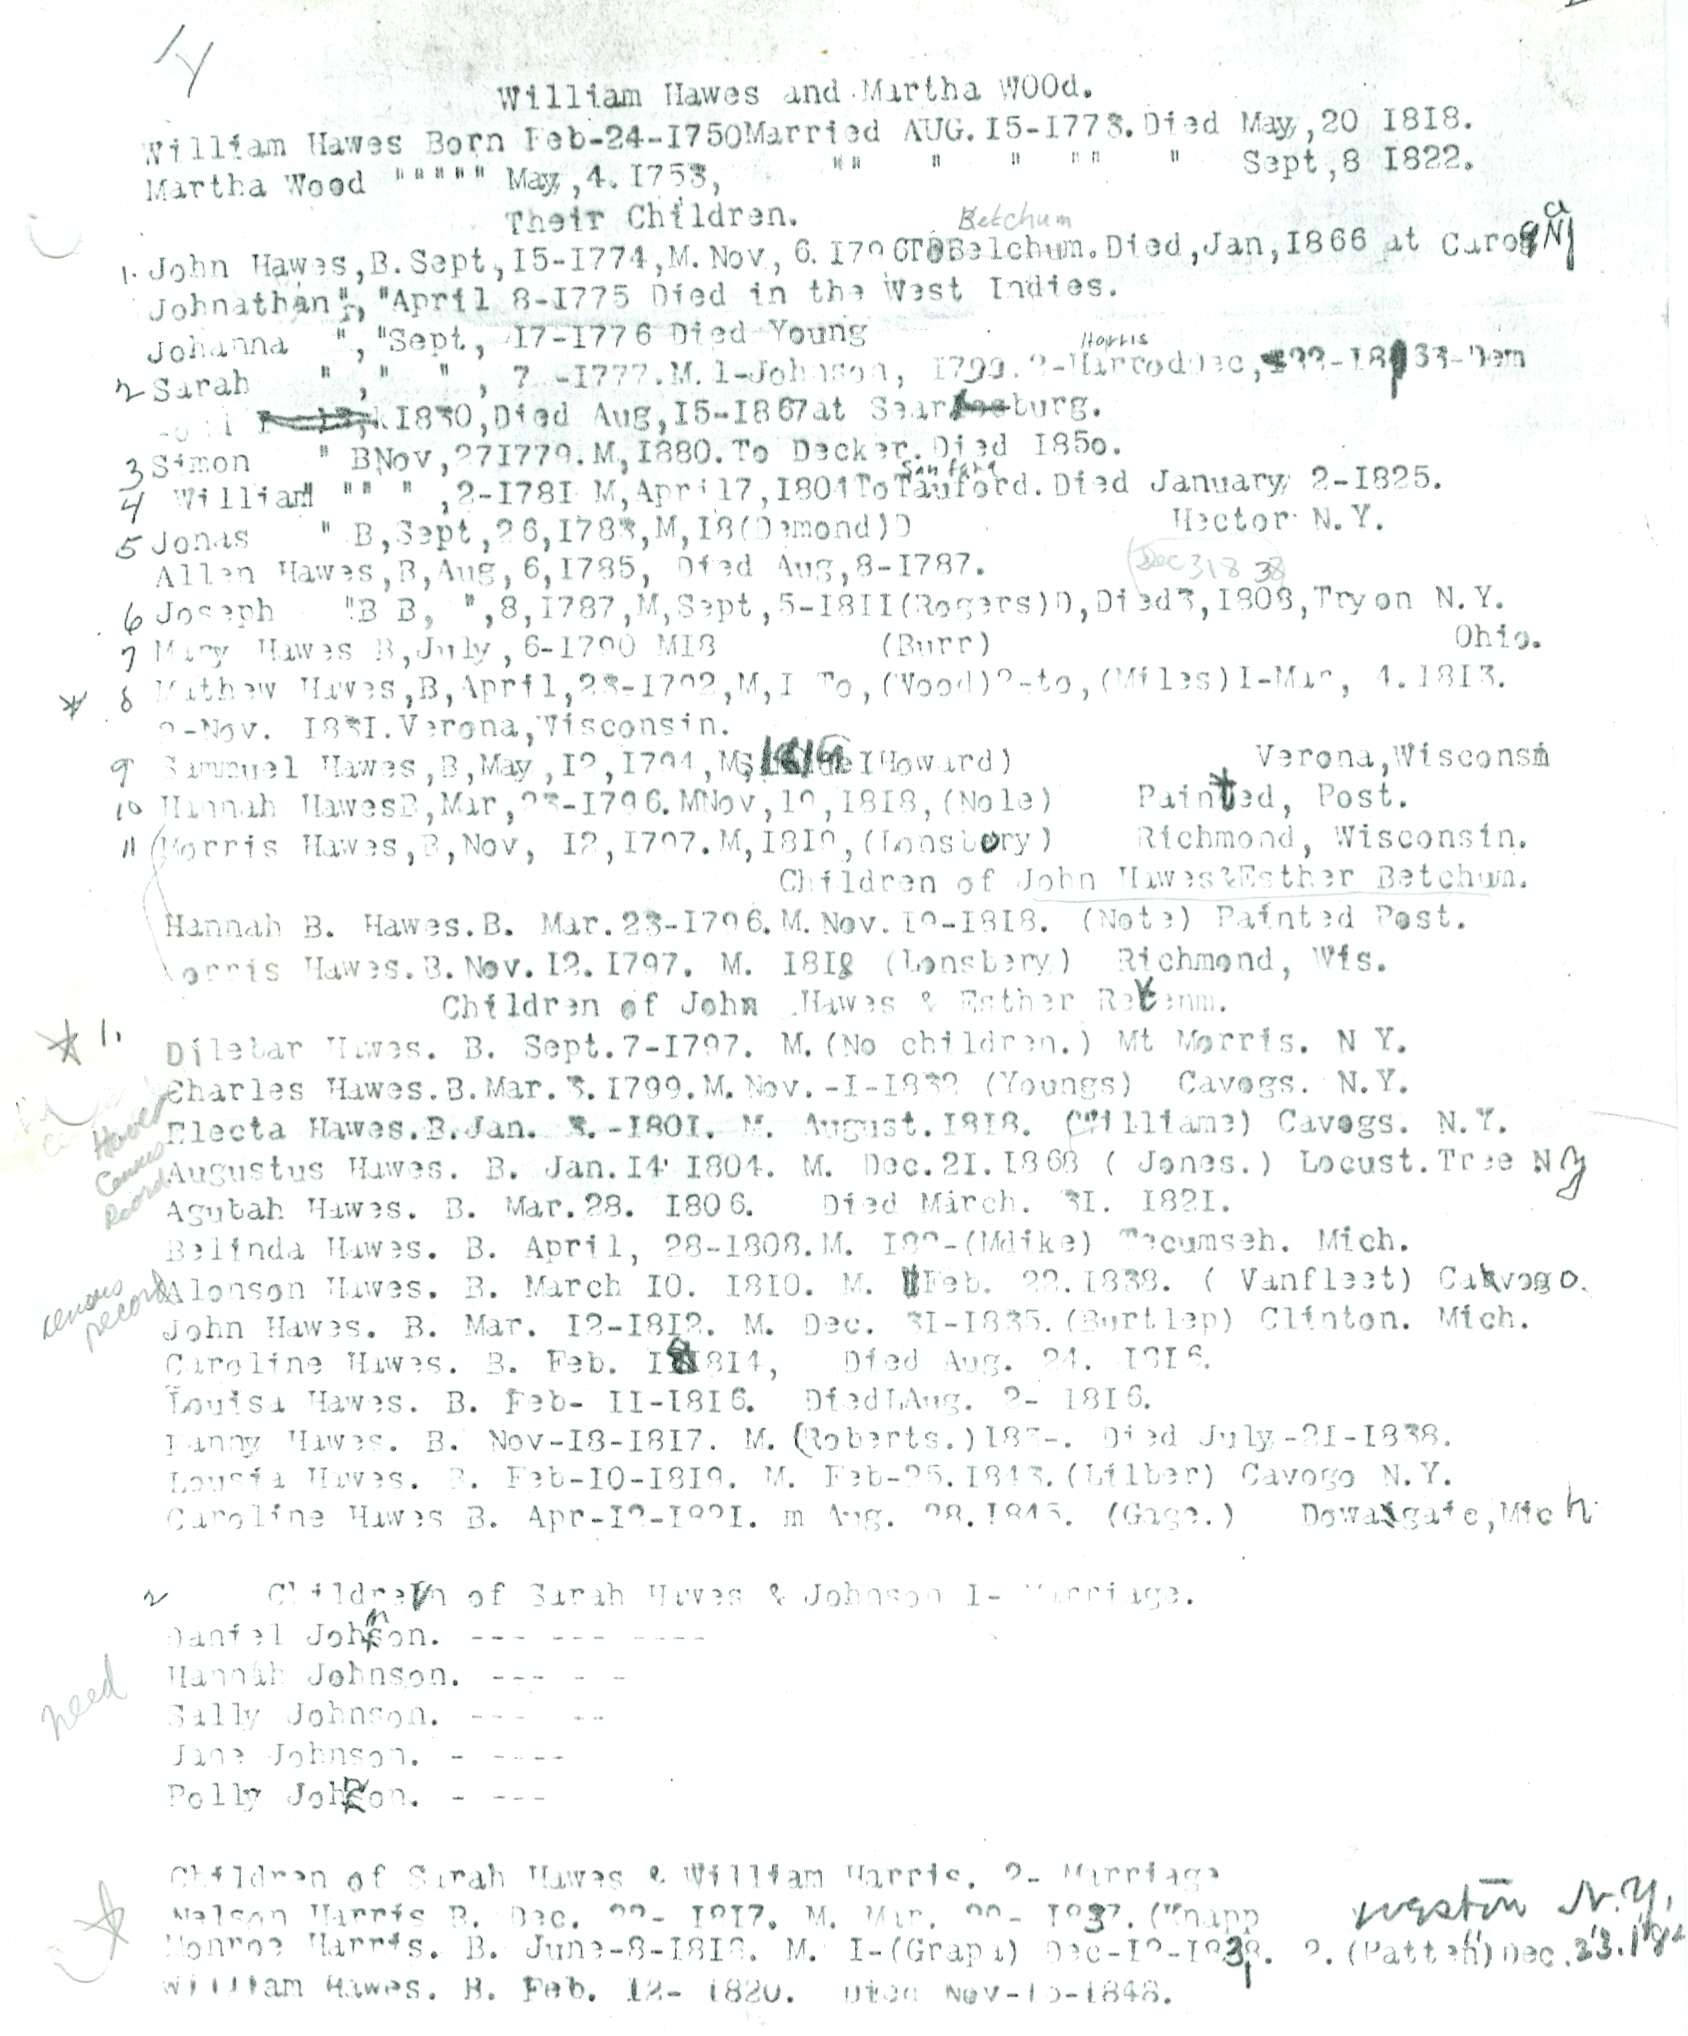 William Hawes and Martha WOOd.
William Hawes Born Feb-24-I750Married AUG. I5-I773. Died May,,20 I8I8.
Martha Wood """"" May,,4. I753, "" " " "" " Sept,8 I822.
Their Children. Betchum
1. John Hawes,B.Sept,I5-I774,M.Nov, 6. I796To Belchum.Died,Jan,I866 at
Johnathan", "April 8-I775 Died in the West Indies.
Johanna ", "Sept, I7-I776 Died Young
Harris
2 Sarah "," " , 7 -I777.M. 1-Johnson, I799. 2-Harrod Dec,
I830,Died Aug,I5-I867at burg.
3 Simon " BNov,27I779.M,I880.To Decker.Died I850.
Sanford
4 William" "" " ,2-I78I M,April7,I80ITo Tauford. Died January, 2-I825.
5 Jonas " B,Sept,26,I783,M,I8(Demond)) Hector N.Y.
Allen Hawes,B,Aug, 6,I785, Died Aug,8-I787.
Dec 31 8 38
6 Joseph "B B, ",8,I787,M,Sept,5-I8II(Rogers)D,Died3,I808,Tryon N.Y.
7 Mary Hawes B,July,6-I790 MI8 (Burr) Ohio.
8 Mathew Hawes,B,April,23-I792,M,I To,(Wood)2-to,(Miles)I-Mar, 4.I8I3.
2-Nov. I83I.Verona,Wisconsin.
9 Sammuel Hawes,B,May,I2,I794, (Howard) Verona,Wisconsin
10 Hannah HawesB,Mar,23-I796.MNov,I9,I8I8,(Nole) Painted, Post.
11 Morris Hawes,B,Nov, I2,I797.M,I8I9,(Lonsbery) Richmond, Wisconsin.
Children of John Hawes&Esther Betchum.
Hannah B. Hawes.B. Mar.23-I796.M.Nov.I9-I8I8. (Note) Painted Post.
Morris Hawes.B.Nov.I2.I797. M. I8I8 (Lonsbery) Richmond, Wis.
Children of John Hawes & Esther
1. Dilebar Hawes. B. Sept.7-I797. M.(No children.) Mt Morris. N Y.
Charles Hawes.B.Mar.3.I799.M.Nov.-I-I832 (Youngs) Cavogs. N.Y.
Electa Hawes.B.Jan. 3.-I80I. M. August.I8I8. (Williams) Cavogs. N.Y.
Census Record
Augustus Hawes. B. Jan.I4 I804. M. Dec.2I.I868 ( Jones.) Locust.Tree N y
Agubah Hawes. B. Mar.28. I806. Died March. 3I. I82I.
Belinda Hawes. B. April, 28-I808.M. (Mdike) Tecumseh. Mich.
census record
Alonson Hawes. B. March I0. I8I0. M. Feb. 22.I838. ( Vanfleet)
John Hawes. B. Mar. I2-I8I2. M. Dec. 3I-I835.(Burtlep) Clinton. Mich.
Caroline Hawes. B. Feb. I8I4, Died Aug. 24. I8I6.
Louisa Hawes. B. Feb- II-I8I6. Died Aug. 2- I8I6.
Fanny Hawes. B. Nov-I8-I8I7. M. (Roberts.)I83-. Died July-2I-I838.
Lousia Hawes. B. Feb-I0-I8I9. M. Feb-25.I843.(Lilber) Cavogo N.Y.
Caroline Hawes B. Apr-I2-I82I. m Aug. 28.I845. (Gage.) Dowagate,Mich
2 Children of Sarah Hawes & Johnson I- Marriage.
Daniel Johnson. --- --- ----
Hannah Johnson. --- - -
need
Sally Johnson. --- --
Jane Johnson. - ----
Polly Johnson. - ---
Children of Sarah Hawes & William Harris. 2- Marriage
Nelson Harris B. Dec. 22- I8I7. M. Mar. (Knapp N.Y.
Monroe Harris. B. June-8-I8I8. M. I-(Grapa) 2. (Patteh) Dec.
William Hawes. B. Feb. I2- I820. Died Nov-I5-I848.